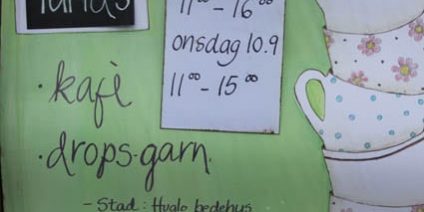 11⁰⁰ - 16⁰⁰
onsdag 10.9
11⁰⁰ - 15⁰⁰
· kafè
· drops-garn.
- Stad: Huglo bedehus